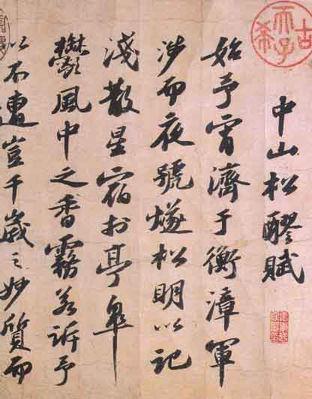 中山松醪賦
始予宵濟于衡漳軍
涉而夜號燧松明以記
淺散星宿於亭皋
鬱風中之香霧若訴予
以不遭豈千歲之妙質而
古希天子